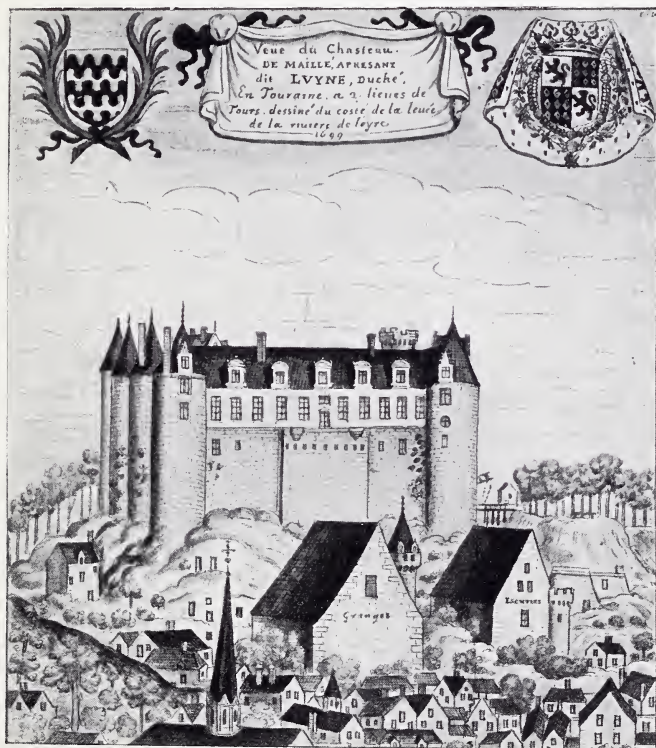 Veue du Chasteau.
DE MAILLÉ, APRESANT
dit LUYNE, Duché,
En Touraine, a 2. lieues de
Tours. dessiné du costé de la leuée
de la riuiere de loyre
1699
Granges
Escuries